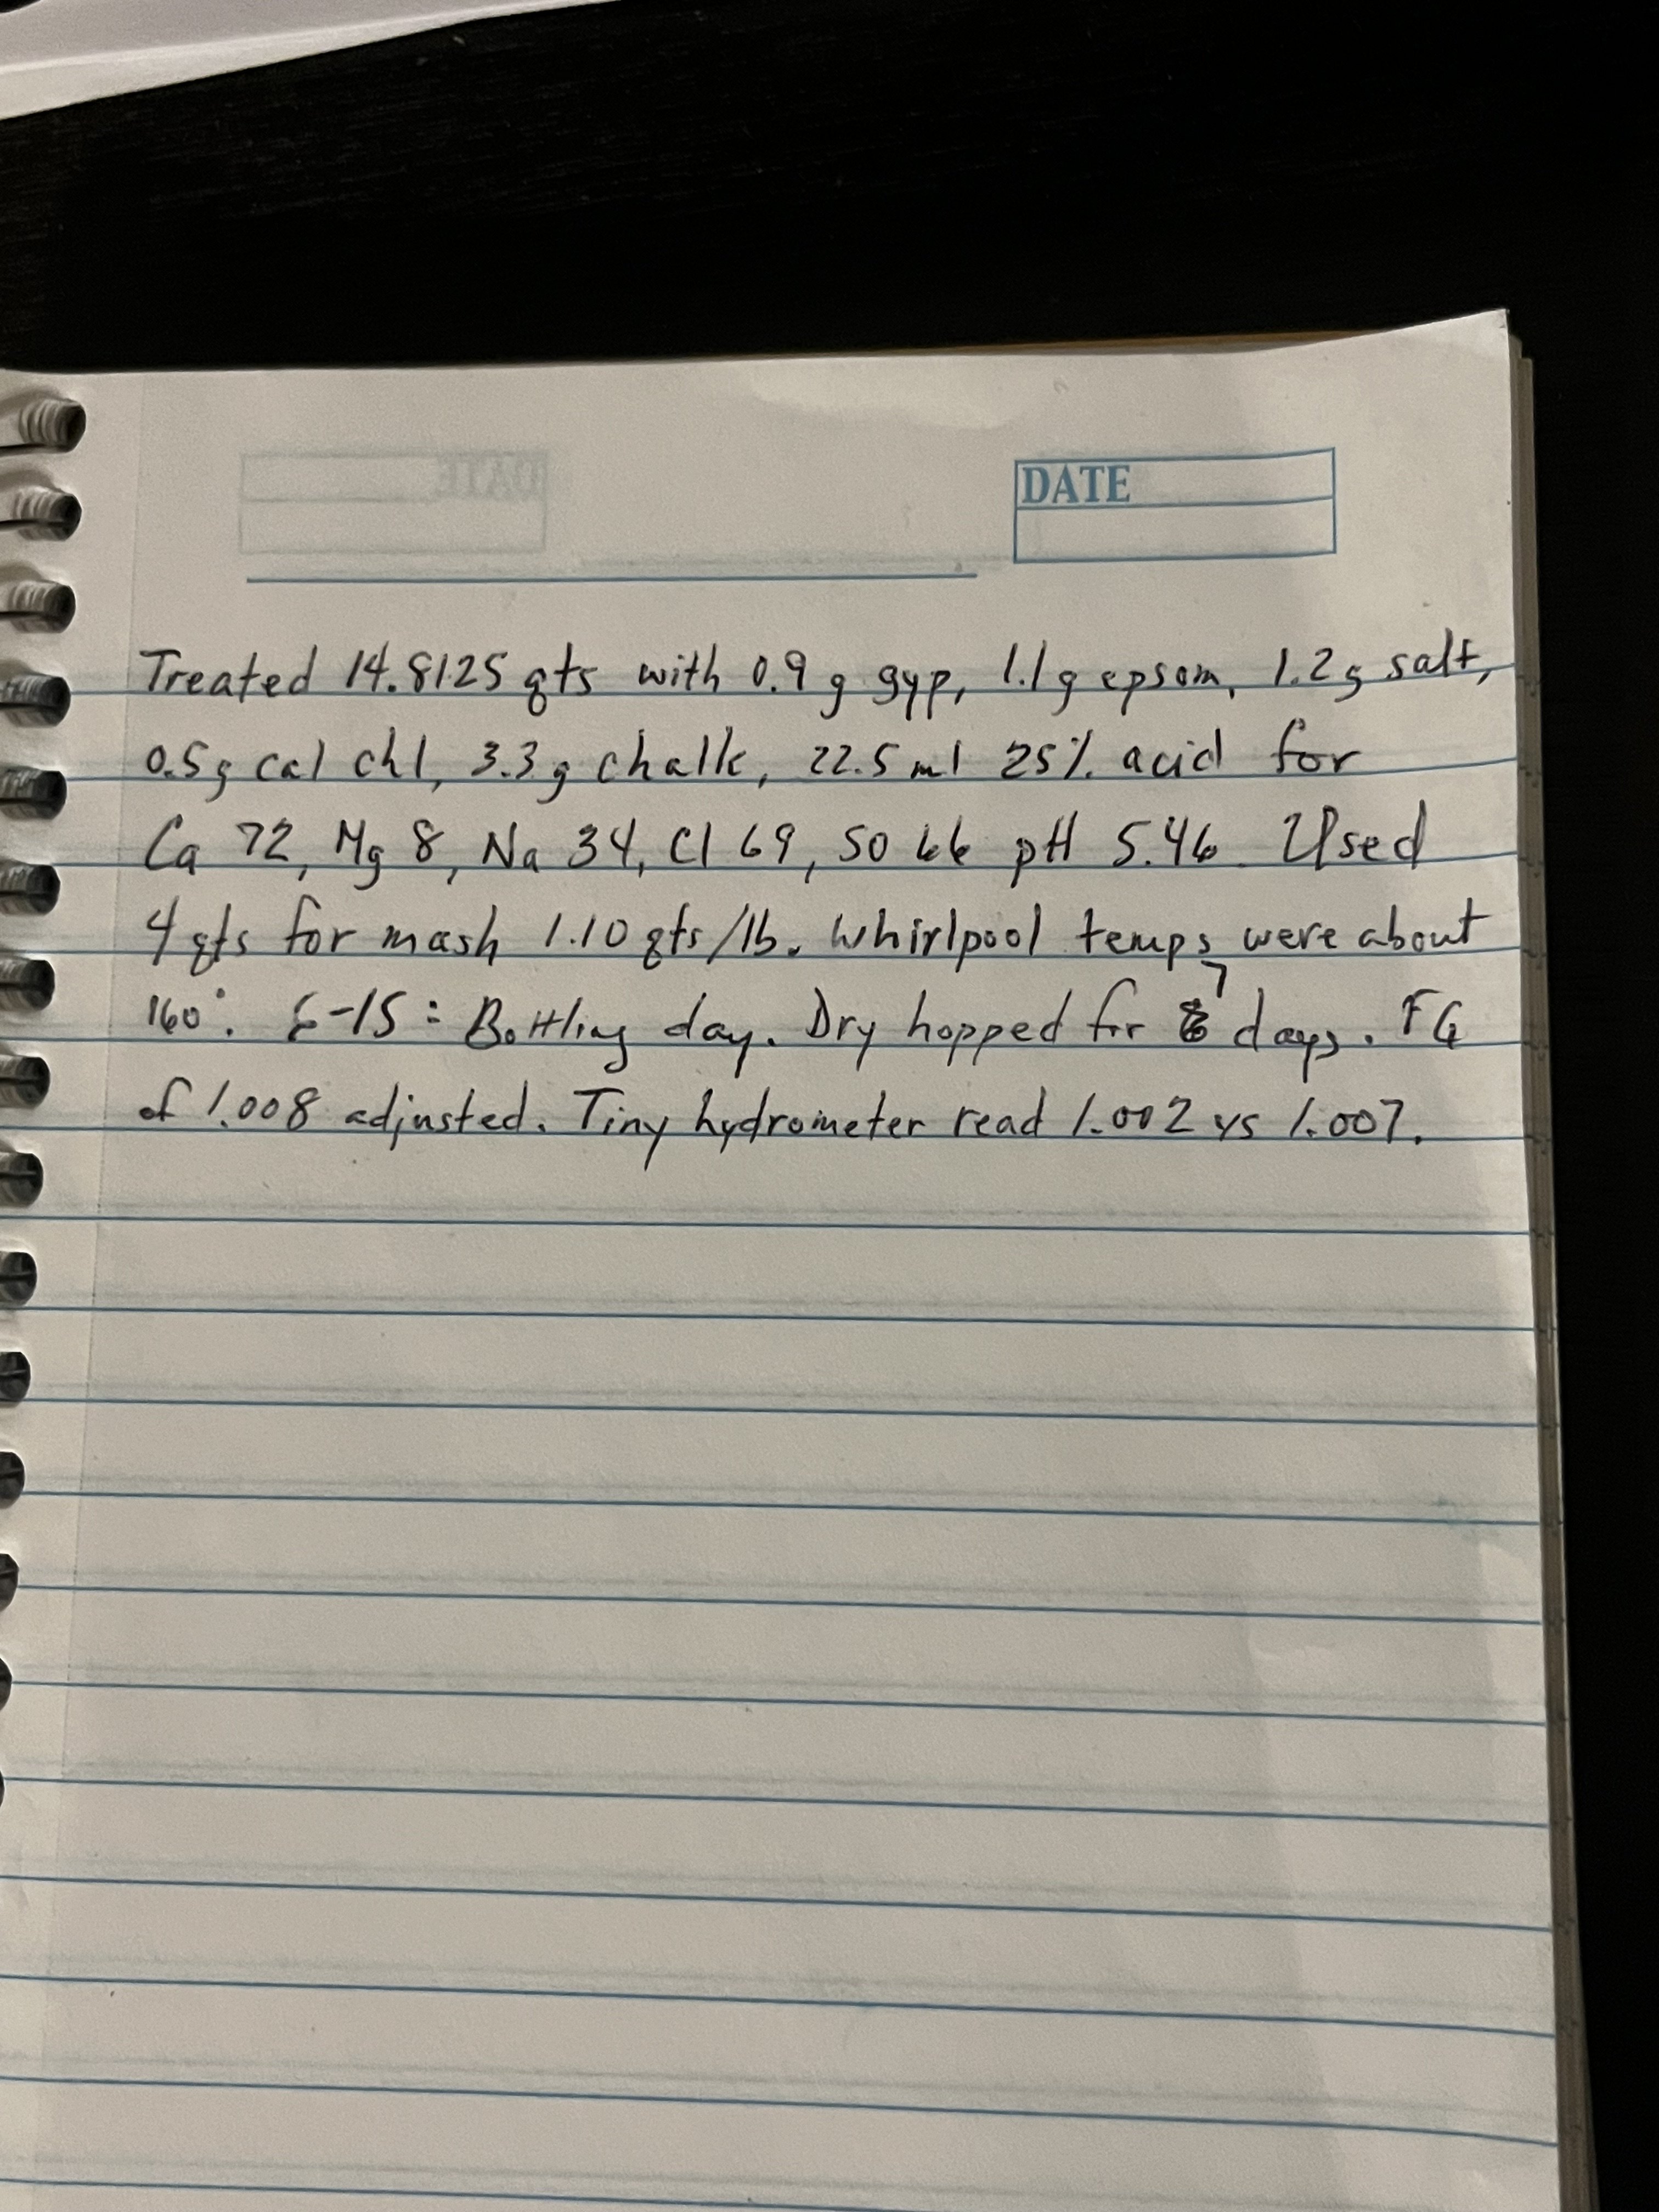 DATE
Treated 14.8125 qts with 0.9 g gyp, 1.1 g epsom, 1.2 g salt,
0.5 g cal chl, 3.3 g chalk, 22.5 ml 25% acid for
Ca 72, Mg 8, Na 34, Cl 69, SO 66 pH 5.46. Used
4 qts for mash 1.10 qts/lb. Whirlpool temps were about
160°. 6-15: Bottling day. Dry hopped for 7 days. FG
of 1.008 adjusted. Tiny hydrometer read 1.002 vs 1.007.